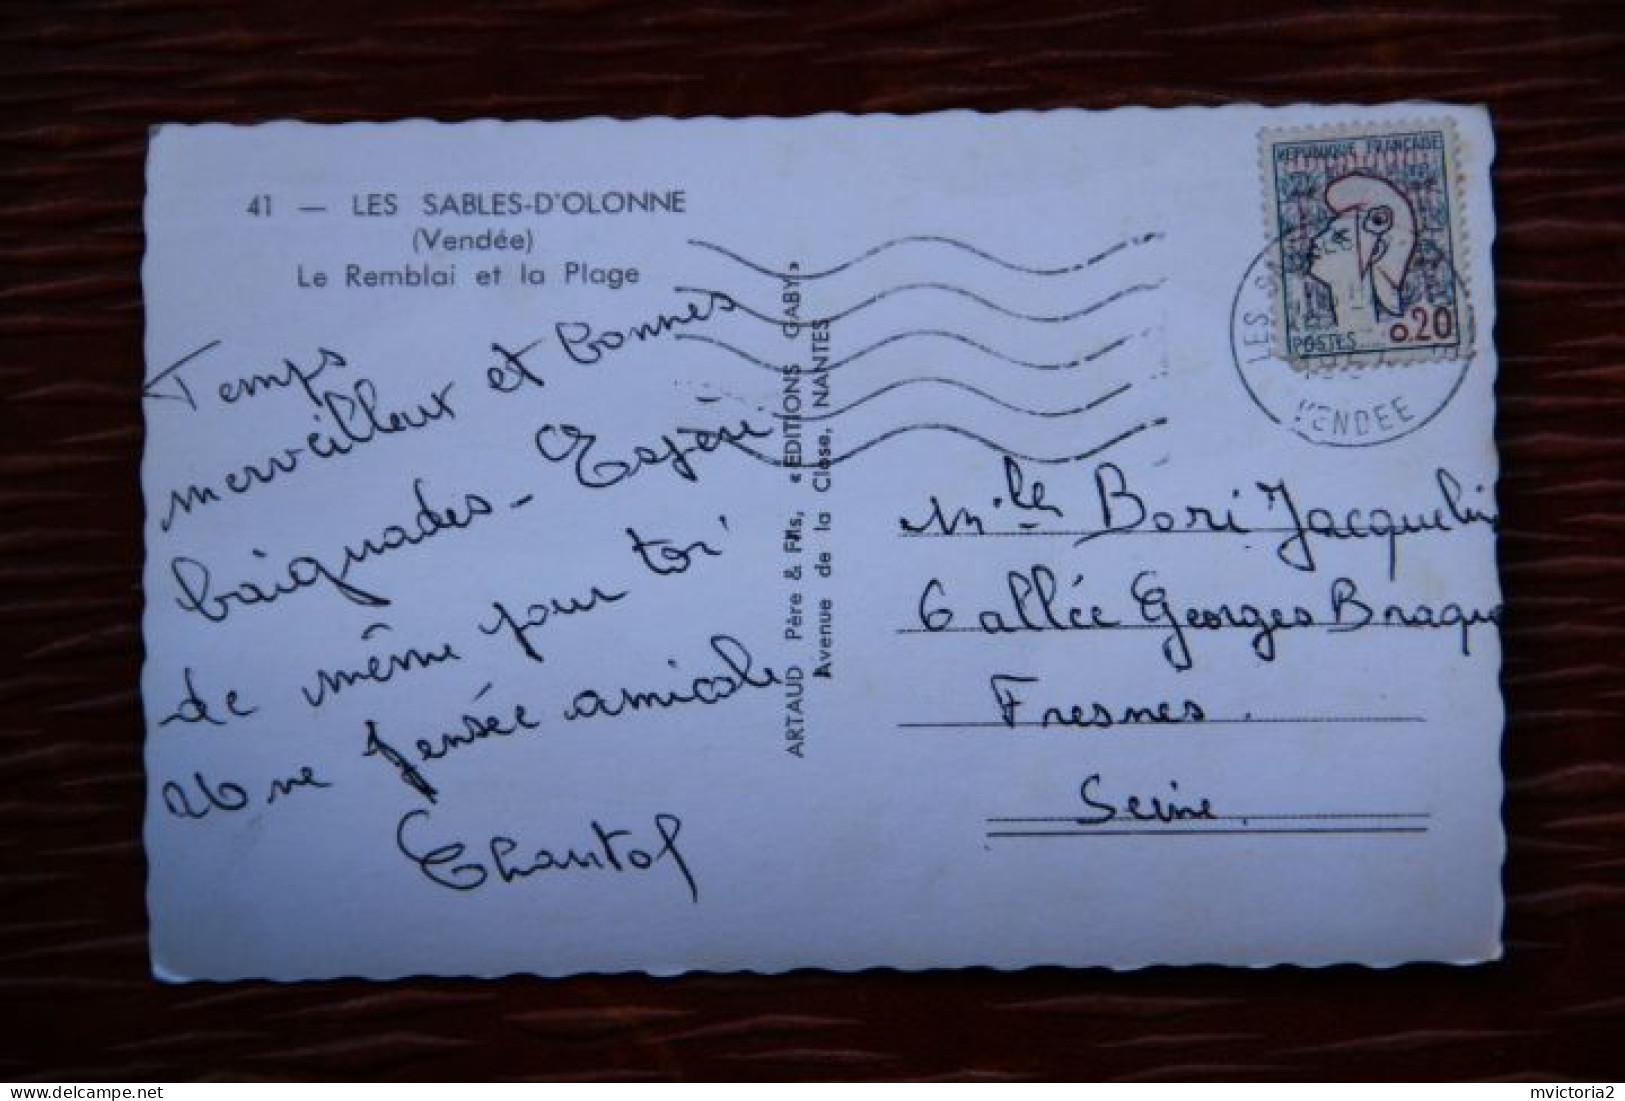 41 — LES SABLES-D'OLONNE
(Vendée)
Le Remblai et la Plage
Temps
merveilleux et bonnes
baignades - Espère
de même pour toi
Une pensée amicale
Chantal
ARTAUD Père & Fils, « EDITIONS GABY »
Avenue de la Close, NANTES
REPUBLIQUE FRANÇAISE
POSTES 0.20
LES S
VENDEE
Mlle Bori Jacqueline
6 allée Georges Braque
Fresnes.
Seine.
mvictoria2